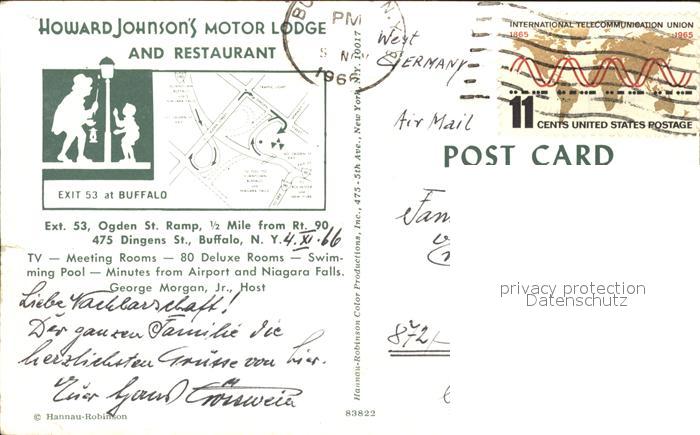 HOWARD JOHNSON'S MOTOR LODGE
AND RESTAURANT
EXIT 53 at BUFFALO
Ext. 53, Ogden St. Ramp, ½ Mile from Rt. 90
475 Dingens St., Buffalo, N. Y. 4.XI.66
TV — Meeting Rooms — 80 Deluxe Rooms — Swim-
ming Pool — Minutes from Airport and Niagara Falls.
George Morgan, Jr., Host
Liebe Nachbarschaft!
Der ganzen Familie die
herzlichsten Grüsse von hier.
Euer
© Hannau-Robinson
83822
Hannau-Robinson Color Productions, Inc., 475 - 5th Ave., New York, N.Y. 10017
PM
1966
West
GERMANY
Air Mail
INTERNATIONAL TELECOMMUNICATION UNION
1865 1965
11 CENTS UNITED STATES POSTAGE
POST CARD
Fam
privacy protection
Datenschutz